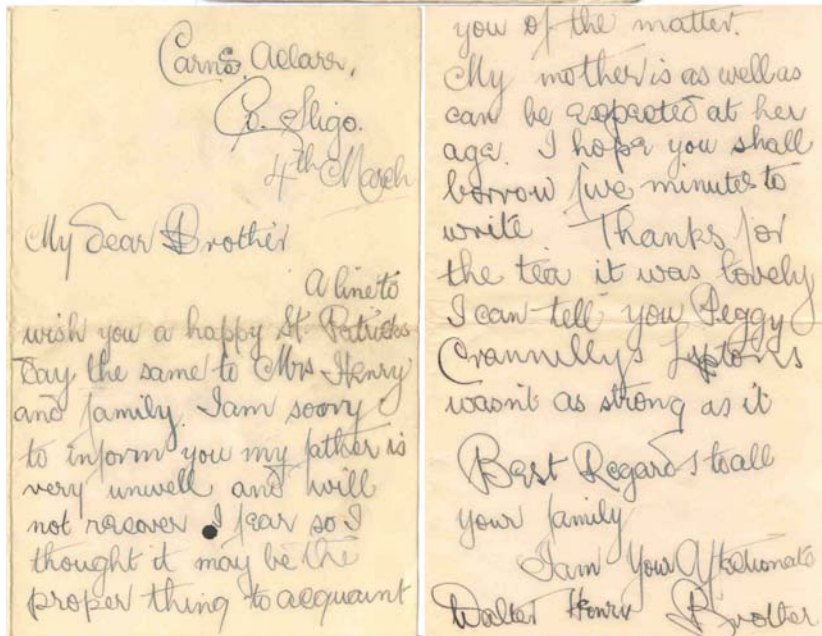 Carns, Aclare,
Co. Sligo.
4th March
My Dear Brother
A line to
wish you a happy St. Patricks
Day the same to Mrs Henry
and family. I am soory
to inform you my father is
very unwell and will
not recover I fear so I
thought it may be the
proper thing to acquaint
you of the matter.
My mother is as well as
can be expected at her
age. I hope you shall
borrow five minutes to
write Thanks for
the tea it was lovely
I can tell you Peggy
Crannillys Liptons
wasnt as strong as it
Best Regards to all
your family
I am Your Affectionate
Walter Henry Brother